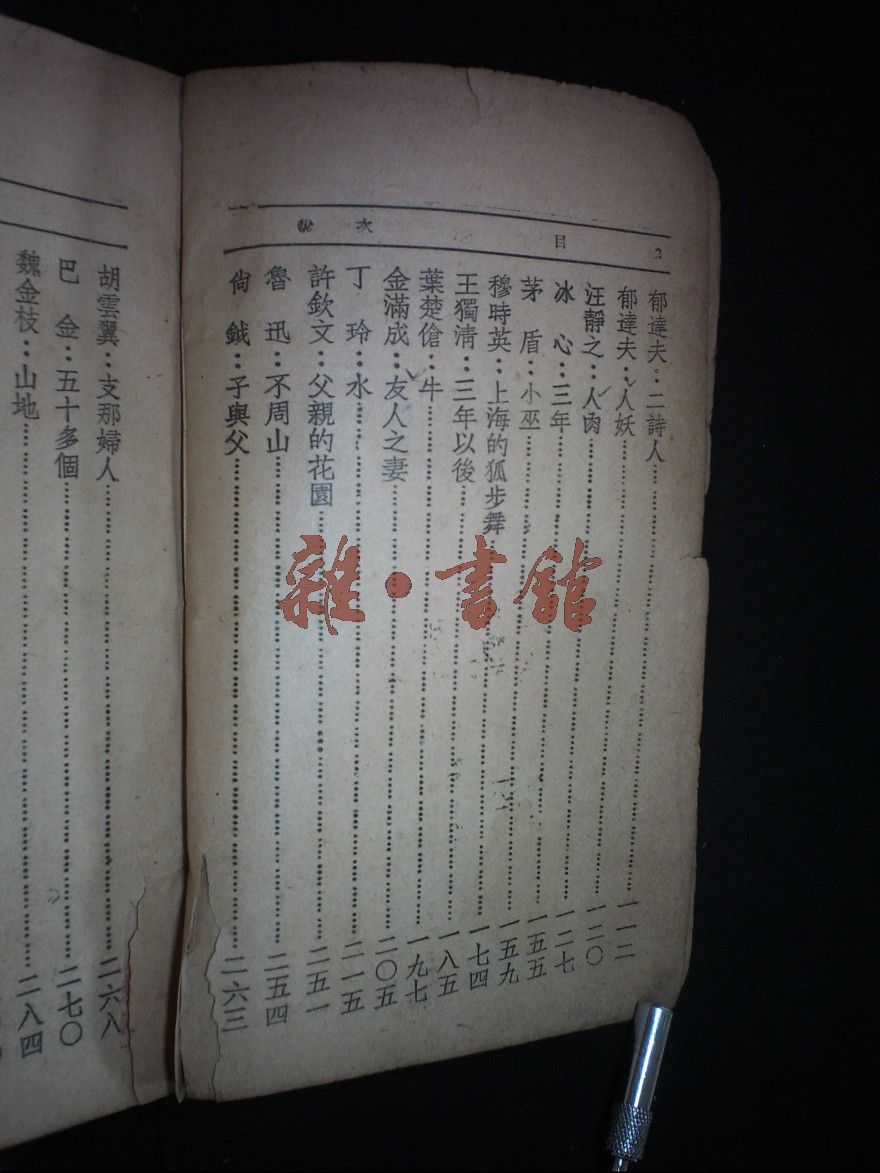 2 目 次
郁達夫：二詩人……一一二
郁達夫：人妖……一二〇
汪靜之：人肉……一二七
冰心：三年……一五五
茅盾：小巫……一五九
穆時英：上海的狐步舞……一七四
王獨清：三年以後……一八五
葉楚傖：牛……一九七
金滿成：友人之妻……二〇五
丁玲：水……二一五
許欽文：父親的花園……二五一
魯迅：不周山……二五四
尙鉞：子與父……二六三
胡雲翼：支那婦人……二六八
巴金：五十多個……二七〇
魏金枝：山地……二八四
雜·書館